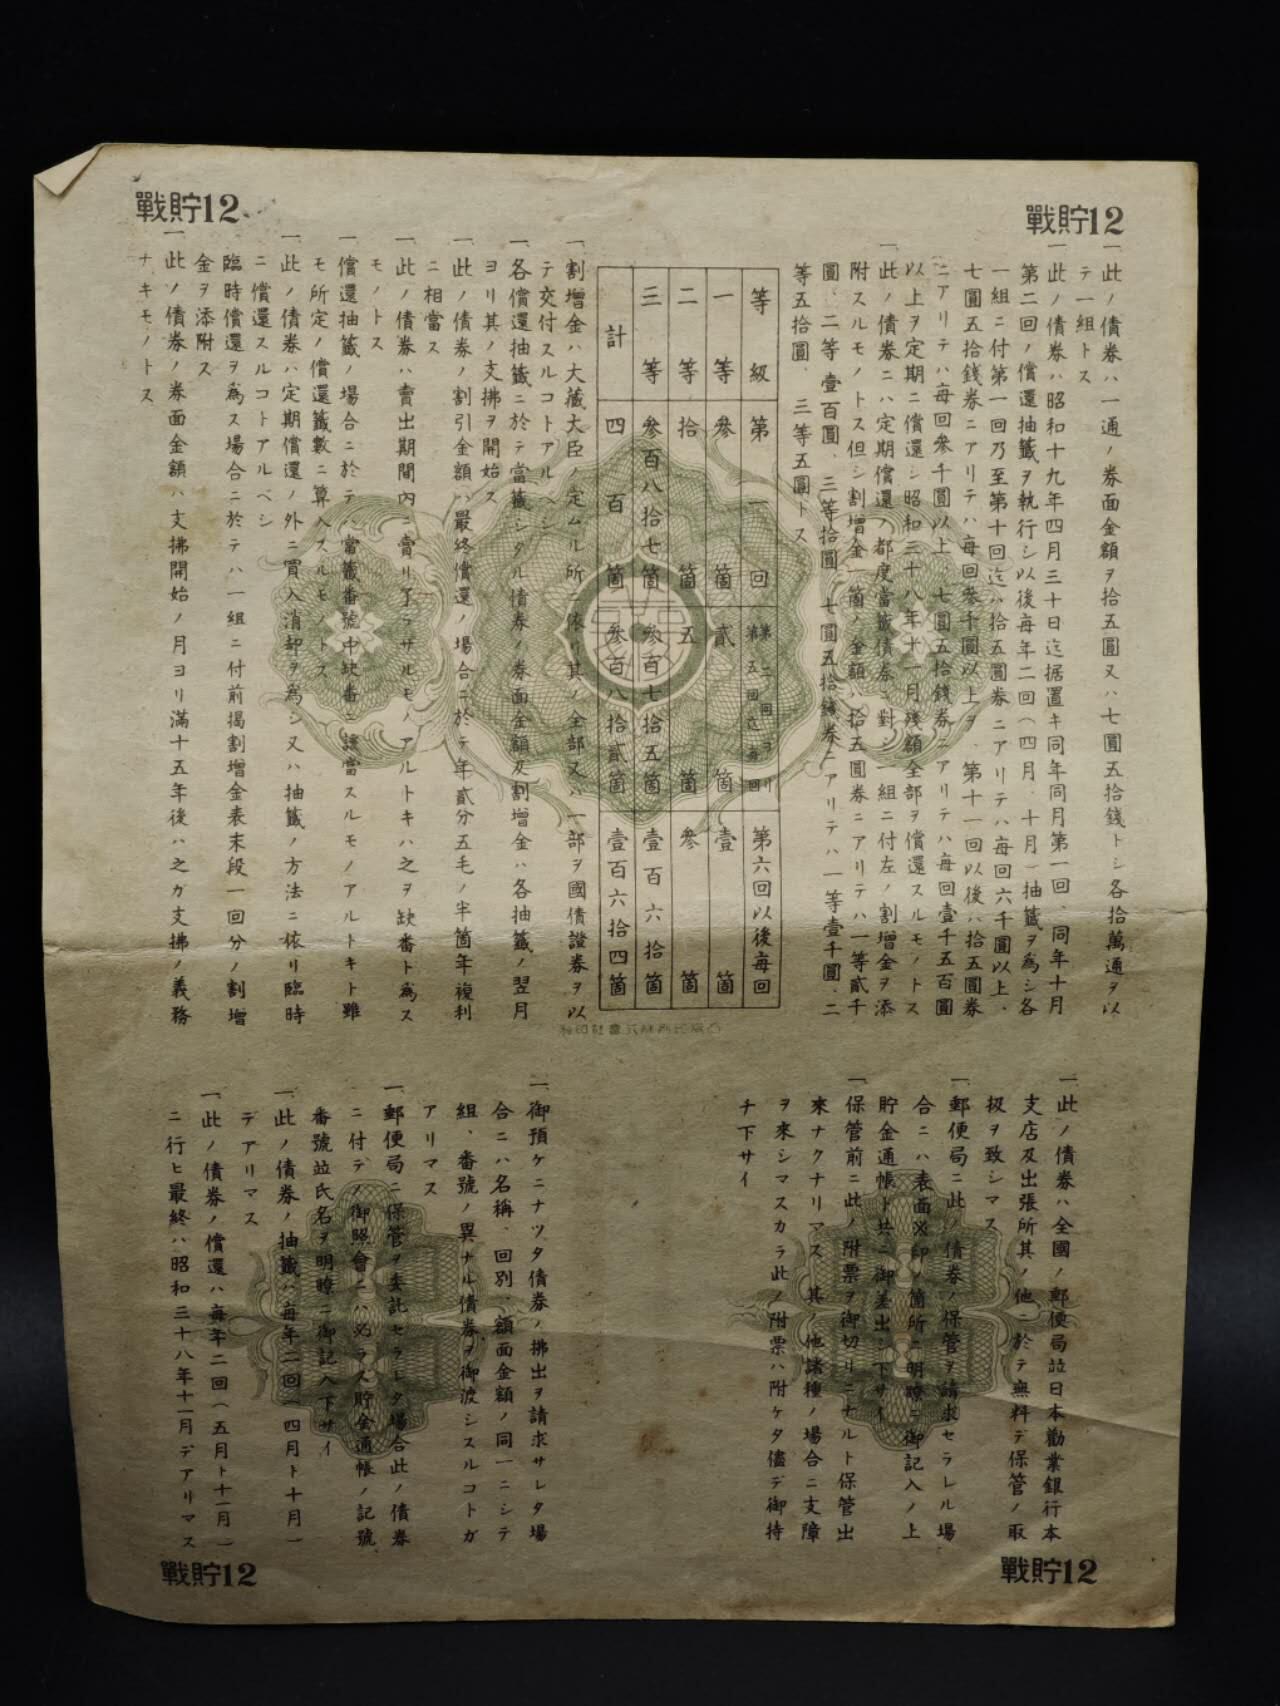 戰貯12
戰貯12
一、此ノ債券ハ一通ノ券面金額ヲ拾五圓又ハ七圓五拾錢トシ各拾萬通ヲ以
テ一組トス
一、此ノ債券ハ昭和十九年四月三十日迄据置キ同年同月第一回、同年十月
第二回ノ償還抽籤ヲ執行シ以後每年二回（四月、十月）抽籤ヲ爲シ各
一組ニ付第一回乃至第十回迄ハ拾五圓券ニアリテハ每回六千圓以上、
七圓五拾錢券ニアリテハ每回參千圓以上ヲ、第十一回以後ハ拾五圓券
ニアリテハ每回參千圓以上、七圓五拾錢券ニアリテハ每回壹千五百圓
以上ヲ定期ニ償還シ昭和三十八年十一月殘額全部ヲ償還スルモノトス
一、此ノ債券ニハ定期償還ノ都度當籤債券ニ對シ一組ニ付左ノ割增金ヲ添
附スルモノトス但シ割增金一箇ノ金額ハ拾五圓券ニアリテハ一等貳千
圓、二等壹百圓、三等拾圓、七圓五拾錢券ニアリテハ一等壹千圓、二
等五拾圓、三等五圓トス
等級 第一回 第二回ヨリ第五回迄每回 第六回以後每回
一等 參箇 貳箇 壹箇
二等 拾箇 五箇 參箇
三等 參百八拾七箇 參百七拾五箇 壹百六拾箇
計 四百箇 參百八拾貳箇 壹百六拾四箇
一、割增金ハ大藏大臣ノ定ムル所ニ依リ其ノ全部又ハ一部ヲ國債證券ヲ以
テ交付スルコトアルベシ
一、各償還抽籤ニ於テ當籤シタル債券ノ券面金額及割增金ハ各抽籤ノ翌月
ヨリ其ノ支拂ヲ開始ス
一、此ノ債券ノ割引金額ハ最終償還ノ場合ニ於テ年貳分五毛ノ半箇年複利
ニ相當ス
一、此ノ債券ハ賣出期間内ニ賣リ了ラザルモノアルトキハ之ヲ缺番ト爲ス
モノトス
一、償還抽籤ノ場合ニ於テハ當籤番號中缺番ニ該當スルモノアルトキト雖
モ所定ノ償還籤數ニ算入スルモノトス
一、此ノ債券ハ定期償還ノ外ニ買入消却ヲ爲シ又ハ抽籤ノ方法ニ依リ臨時
ニ償還スルコトアルベシ
臨時償還ヲ爲ス場合ニ於テハ一組ニ付前揭割增金表末段一回分ノ割增
金ヲ添附ス
一、此ノ債券ノ券面金額ハ支拂開始ノ月ヨリ滿十五年後ハ之ガ支拂ノ義務
ナキモノトス
一、此ノ債券ハ全國ノ郵便局竝日本勸業銀行本
支店及出張所其ノ他ニ於テ無料デ保管ノ取
扱ヲ致シマス
一、郵便局ニ此ノ債券ノ保管ヲ請求セラレル場
合ニハ表面※印ノ箇所ニ明瞭ニ御記入ノ上
貯金通帳ト共ニ御差出シ下サイ
一、保管前ニ此ノ附票ヲ御切リニナルト保管出
來ナクナリマス、其ノ他諸種ノ場合ニ支障
ヲ來シマスカラ此ノ附票ハ附ケタ儘デ御持
チ下サイ
一、御預ケニナツタ債券ノ拂出ヲ請求サレタ場
合ニハ名稱、回別、額面金額ノ同一ニシテ
組、番號ノ異ナル債券ヲ御渡シスルコトガ
アリマス
一、郵便局ニ保管ヲ委託セラレタ場合此ノ債券
ニ付テノ御照會ニハ必ラズ貯金通帳ノ記號
番號竝氏名ヲ明瞭ニ御記入下サイ
一、此ノ債券ノ抽籤ハ每年二回（四月ト十月）
デアリマス
一、此ノ債券ノ償還ハ每年二回（五月ト十一月）
ニ行ヒ最終ハ昭和三十八年十一月デアリマス
戰貯12
戰貯12